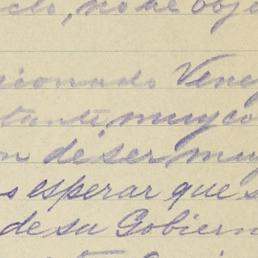 no he obje
cionado Vene
tante muy co
on de ser muy
s esperar que s
de su Gobiern